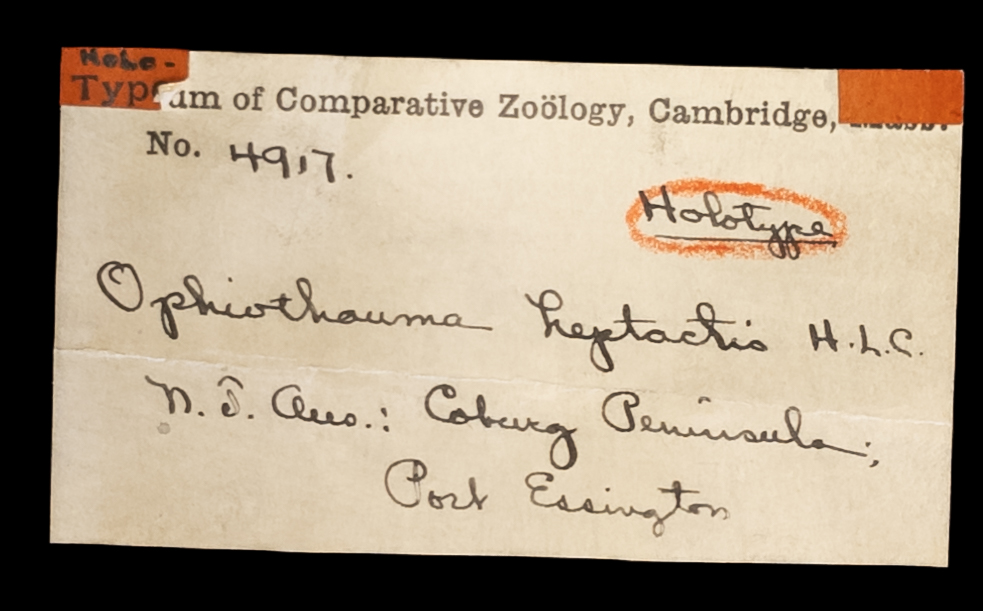 Holo-
Type
um of Comparative Zoölogy, Cambridge, Mass.
No. 4917.
Holotype
Ophiothauma heptactis H.L.C.
N. T. Aus.: Coburg Peninsula;
Port Essington